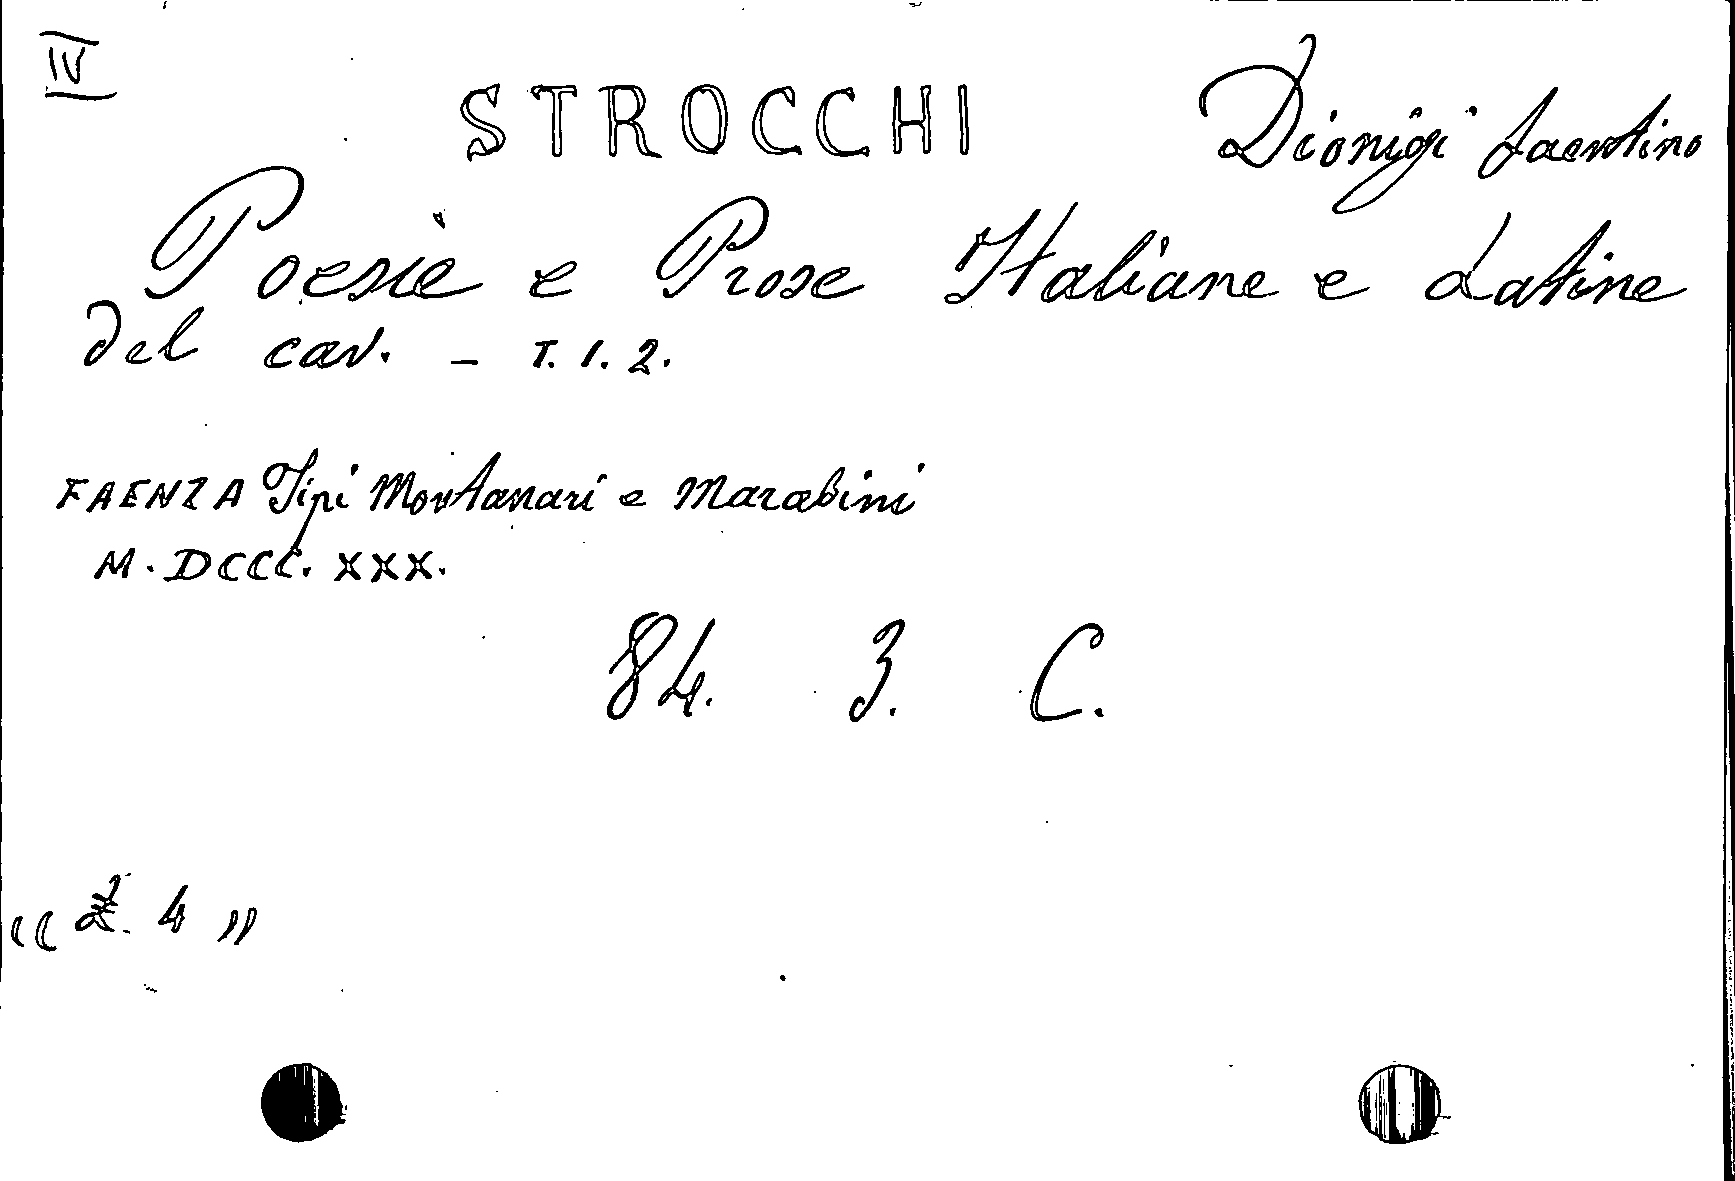 IV
STROCCHI Dionigi faentino
Poesie e Prose Italiane e Latine
del cav. - T. 1. 2.
FAENZA Tipi Montanari e Marabini
M. DCCC. XXX.
84. 3. C.
"£. 4"